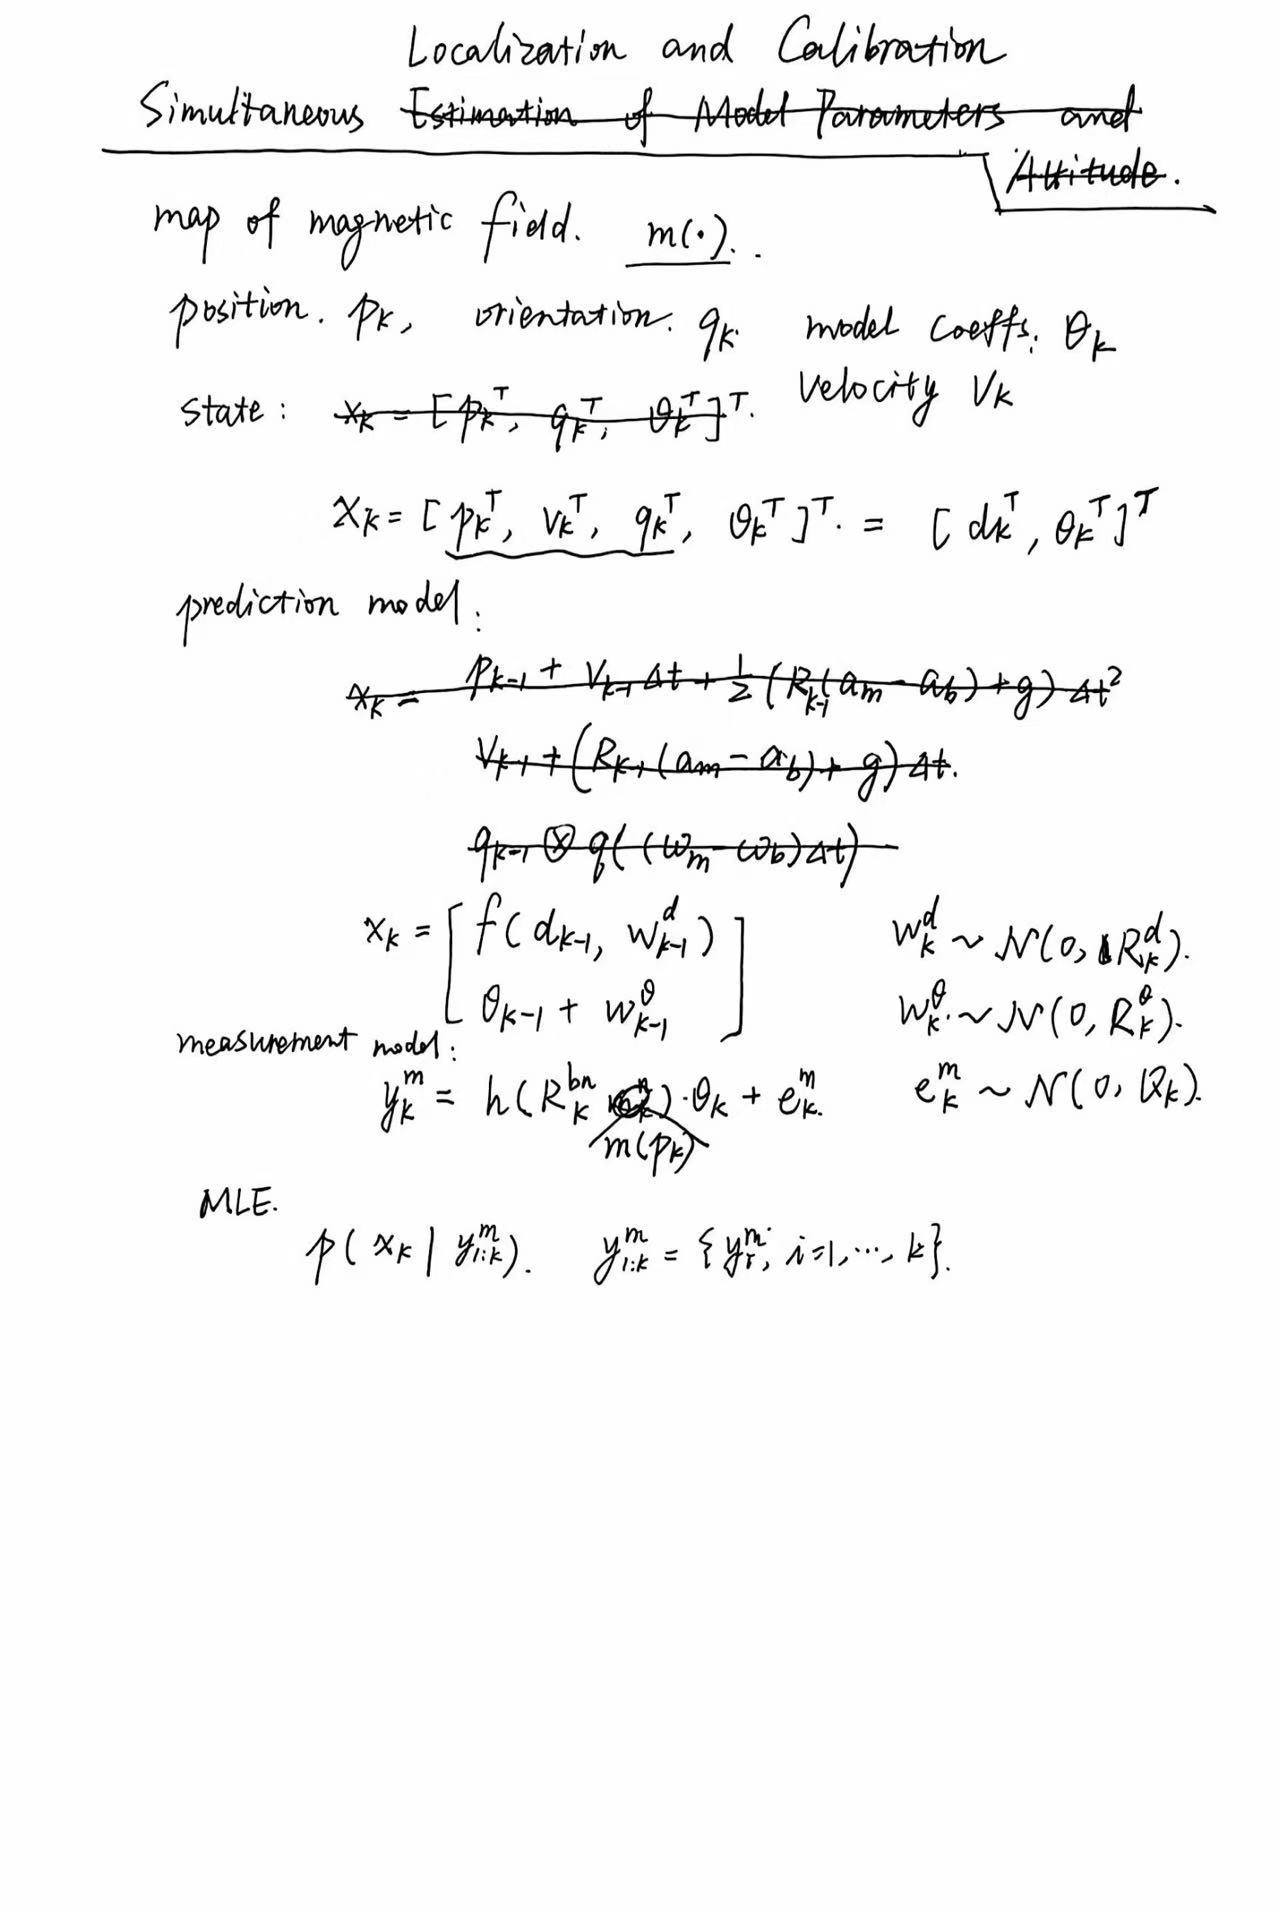 Localization and Calibration
Simultaneous Estimation of Model Parameters and
Attitude.
map of magnetic field. m(·). .
position. pₖ, orientation. qₖ. model coeffs: θₖ
velocity vₖ
state: xₖ = [pₖᵀ, qₖᵀ, θₖᵀ]ᵀ.
xₖ = [pₖᵀ, vₖᵀ, qₖᵀ, θₖᵀ]ᵀ. = [dₖᵀ, θₖᵀ]ᵀ
prediction model:
xₖ = pₖ₋₁ + vₖ₋₁ Δt + 1/2 (Rₖ₋₁(aₘ - a_b) + g) Δt²
vₖ₋₁ + (Rₖ₋₁(aₘ - a_b) + g) Δt.
qₖ₋₁ ⊗ q((ωₘ - ω_b)Δt)
xₖ = [ f(dₖ₋₁, w^d_{k-1}) w^d_k ~ N(0, R^d_k).
θₖ₋₁ + w^θ_{k-1} ] w^θ_k ~ N(0, R^θ_k).
measurement model:
y^m_k = h(R^{bn}_k m(pₖ)) · θₖ + e^m_k. e^m_k ~ N(0, Qₖ).
MLE.
p(xₖ | y^m_{1:k}). y^m_{1:k} = {y^m_i, i=1,⋯, k}.